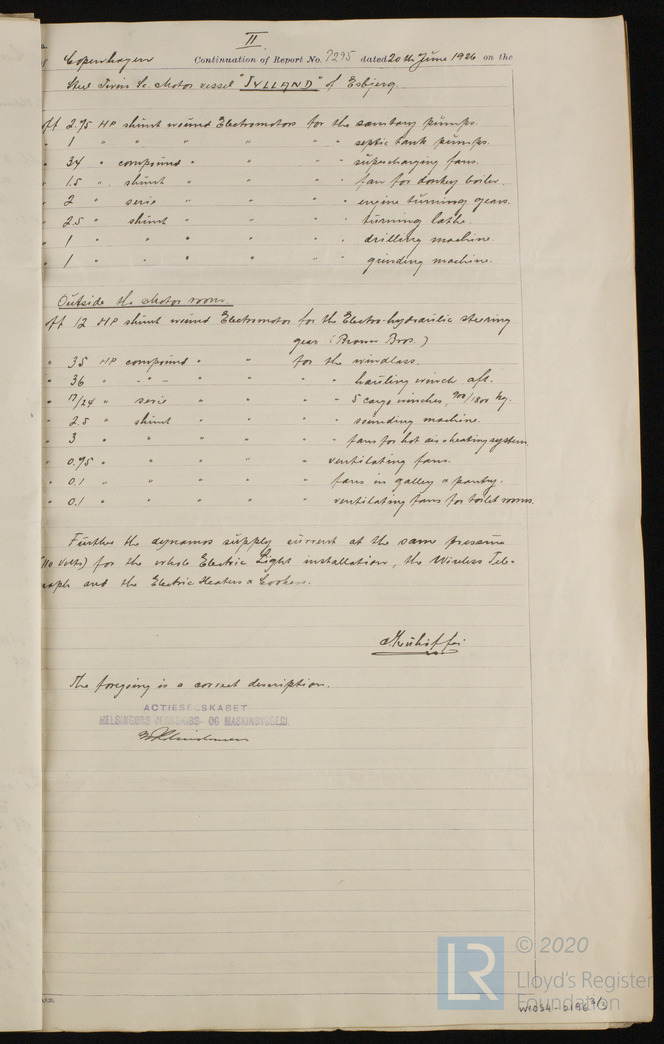 II
Copenhagen Continuation of Report No. 7295 dated 20th June 1926 on the
Steel Twin Sc. Motor vessel "JYLLAND" of Esbjerg.
off 2.75 HP shunt wound Electromotors for the sanitary pumps.
" 1 " " " " " " septic tank pumps.
" 34 " compound " " " " supercharging fans.
" 1.5 " shunt " " " " fan for donkey boiler.
" 2 " serie " " " " engine turning gears.
" 2.5 " shunt " " " " turning lathe.
" 1 " " " " " " drilling machine.
" 1 " " " " " " grinding machine.
Outside the Motor room.
off 12 HP shunt wound Electromotor for the Electro-hydraulic steering
gear (Brown Bros.)
" 35 HP compound " " for the windlass.
" 36 " " " " " " hauling winch aft.
" 17/24 " serie " " " " 5 cargo winches, 900/1800 kg.
" 2.5 " shunt " " " " sounding machine.
" 3 " " " " " " fans for hot air heating system
" 0.75 " " " " " ventilating fans.
" 0.1 " " " " " fans in galley & pantry.
" 0.1 " " " " " ventilating fans for toilet rooms.
Further the dynamos supply current at the same pressure
(110 Volts) for the whole Electric Light installation, the Wireless Tele-
graph and the Electric Heaters & Cookers.
The foregoing is a correct description.
ACTIESELSKABET
HELSINGØRS JERNSKIBS- OG MASKINBYGGERI.
LR
© 2020
Lloyd's Register
Foundation
W1024-0196 3/3